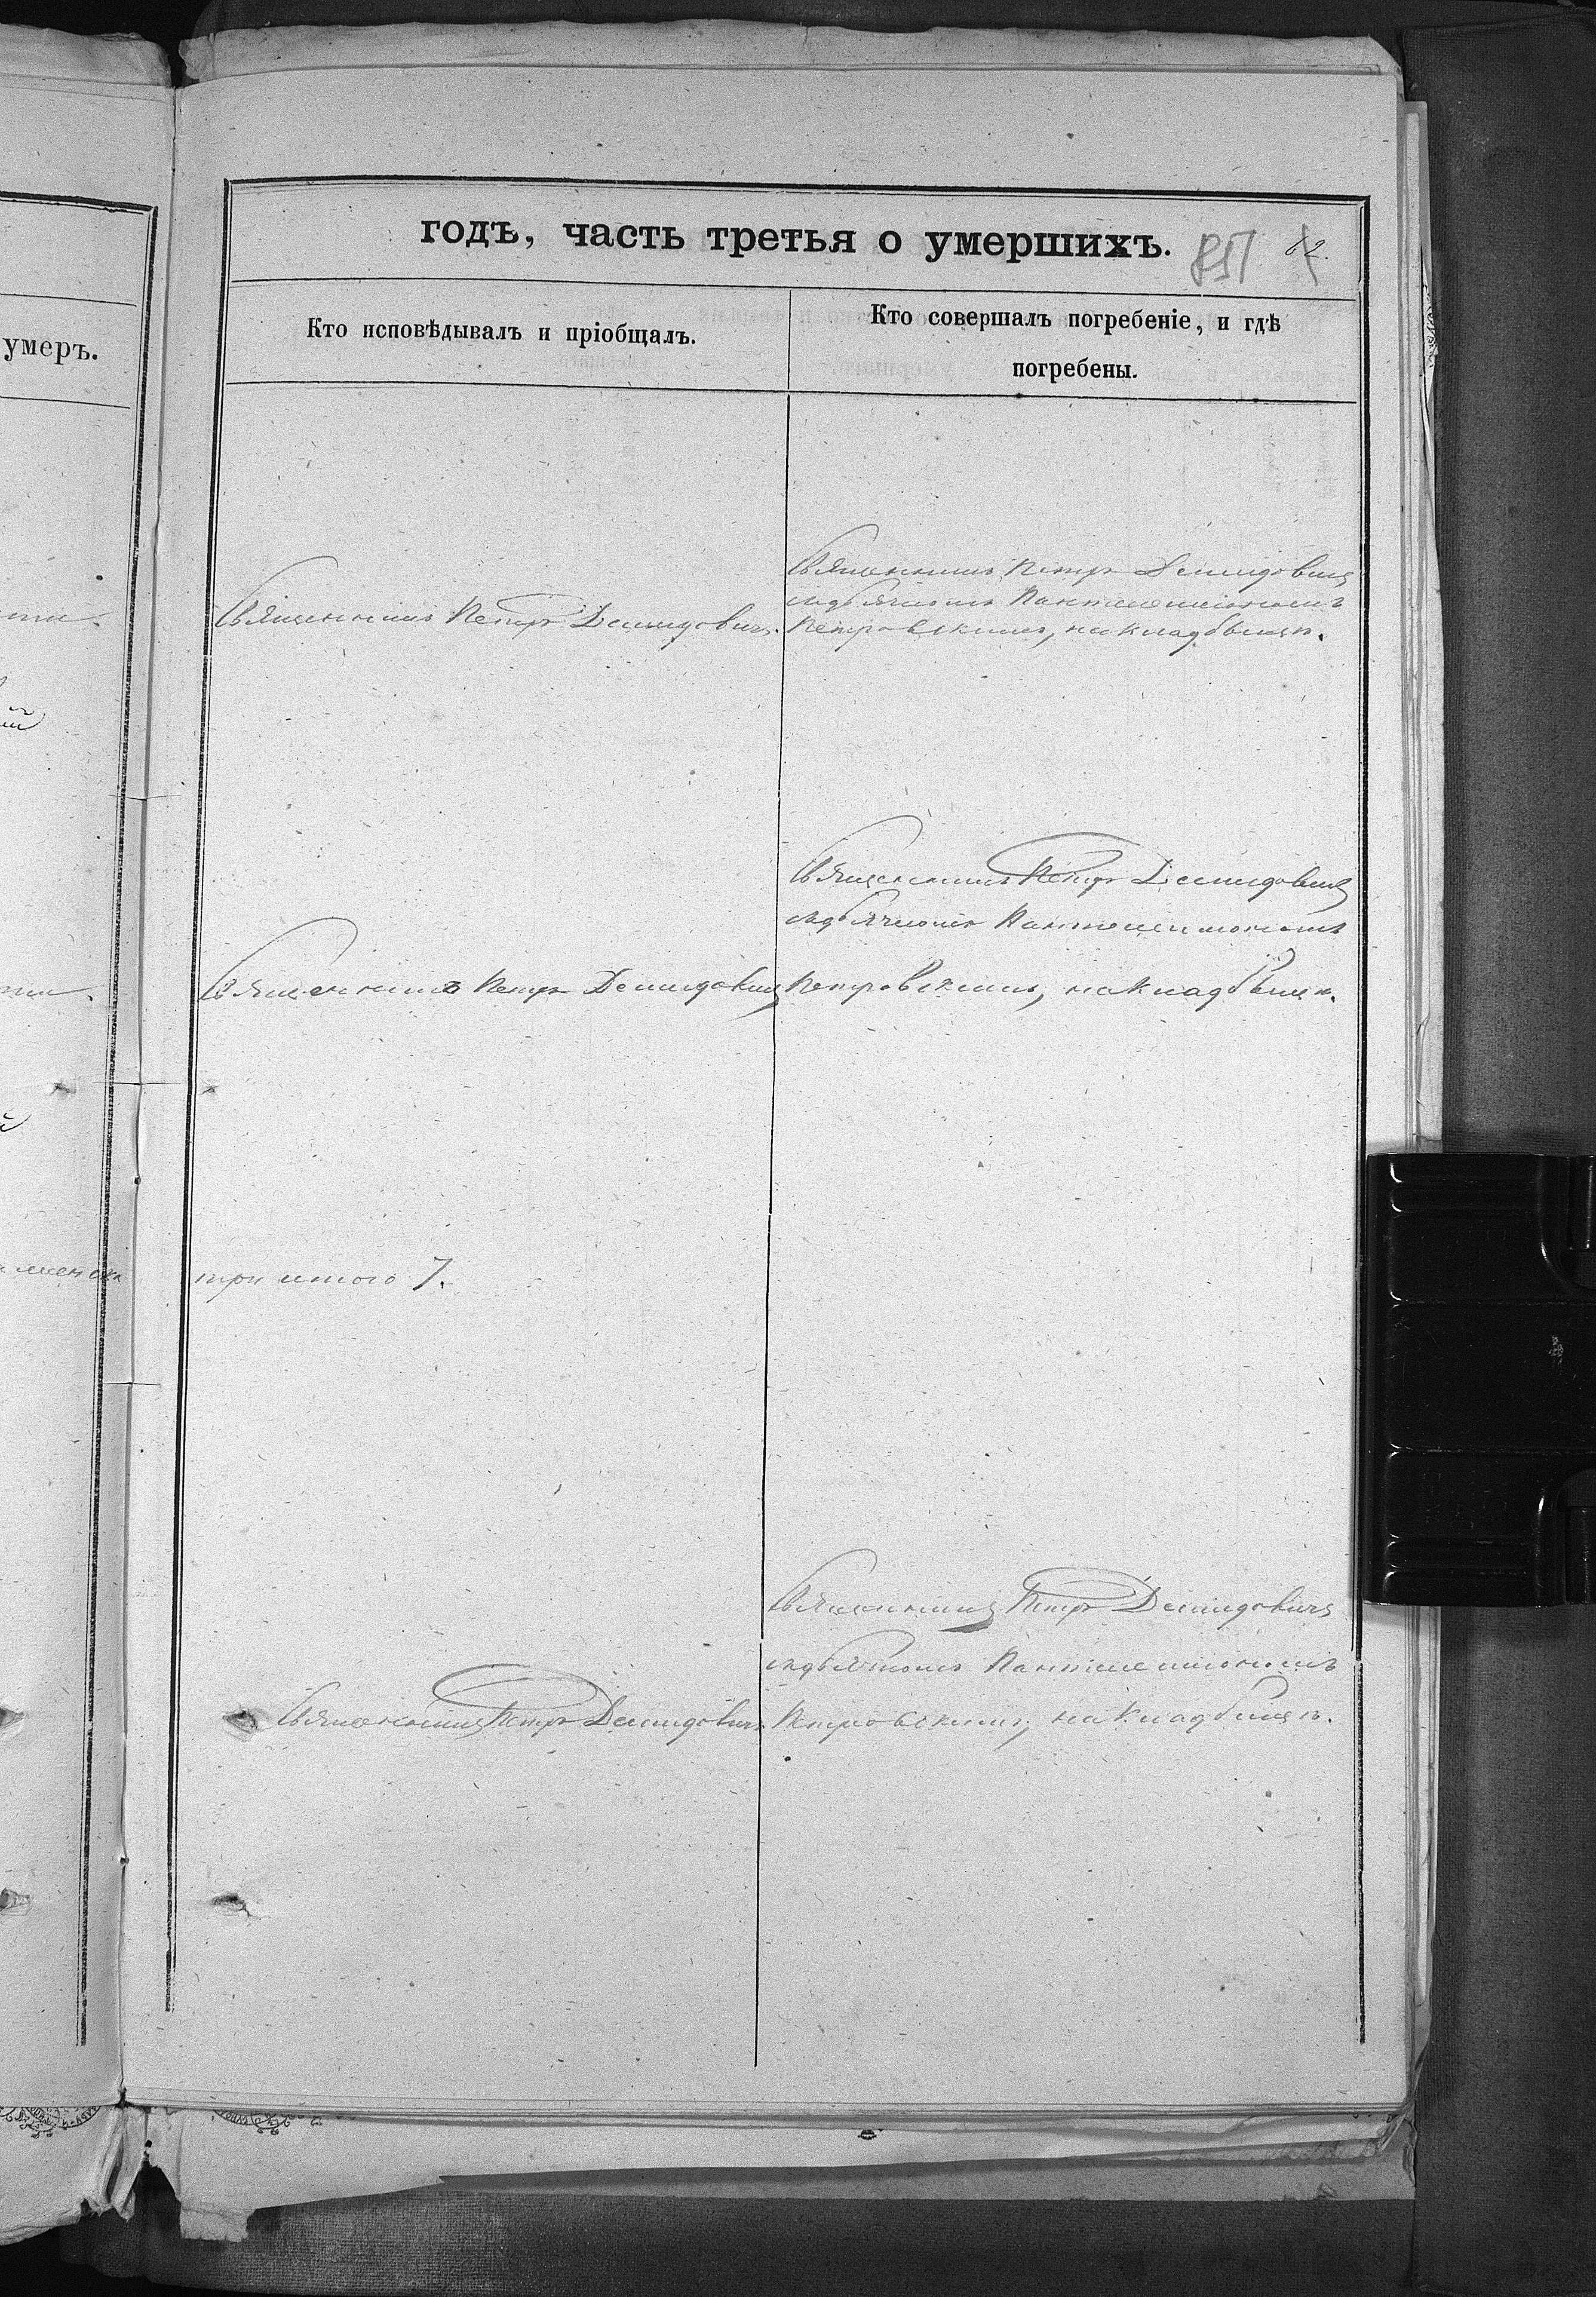 годъ, часть третья о умершихъ.
82.
умеръ.
Кто исповѣдывалъ и пріобщалъ.
Кто совершалъ погребеніе, и гдѣ
погребены.
Священникъ Петръ Демидовичъ
съ дьячкомъ Пантелеимономъ
Священникъ Петръ Демидовичъ.
Петровскимъ, на кладбищѣ.
Священникъ Петръ Демидовичъ
съ дьячкомъ Пантелеимономъ
Священникъ Петръ Демидовичъ
Петровскимъ, на кладбищѣ.
три итого 7.
Священникъ Петръ Демидовичъ
съ дьячкомъ Пантелеимономъ
Священникъ Петръ Демидовичъ
Петровскимъ, на кладбищѣ.